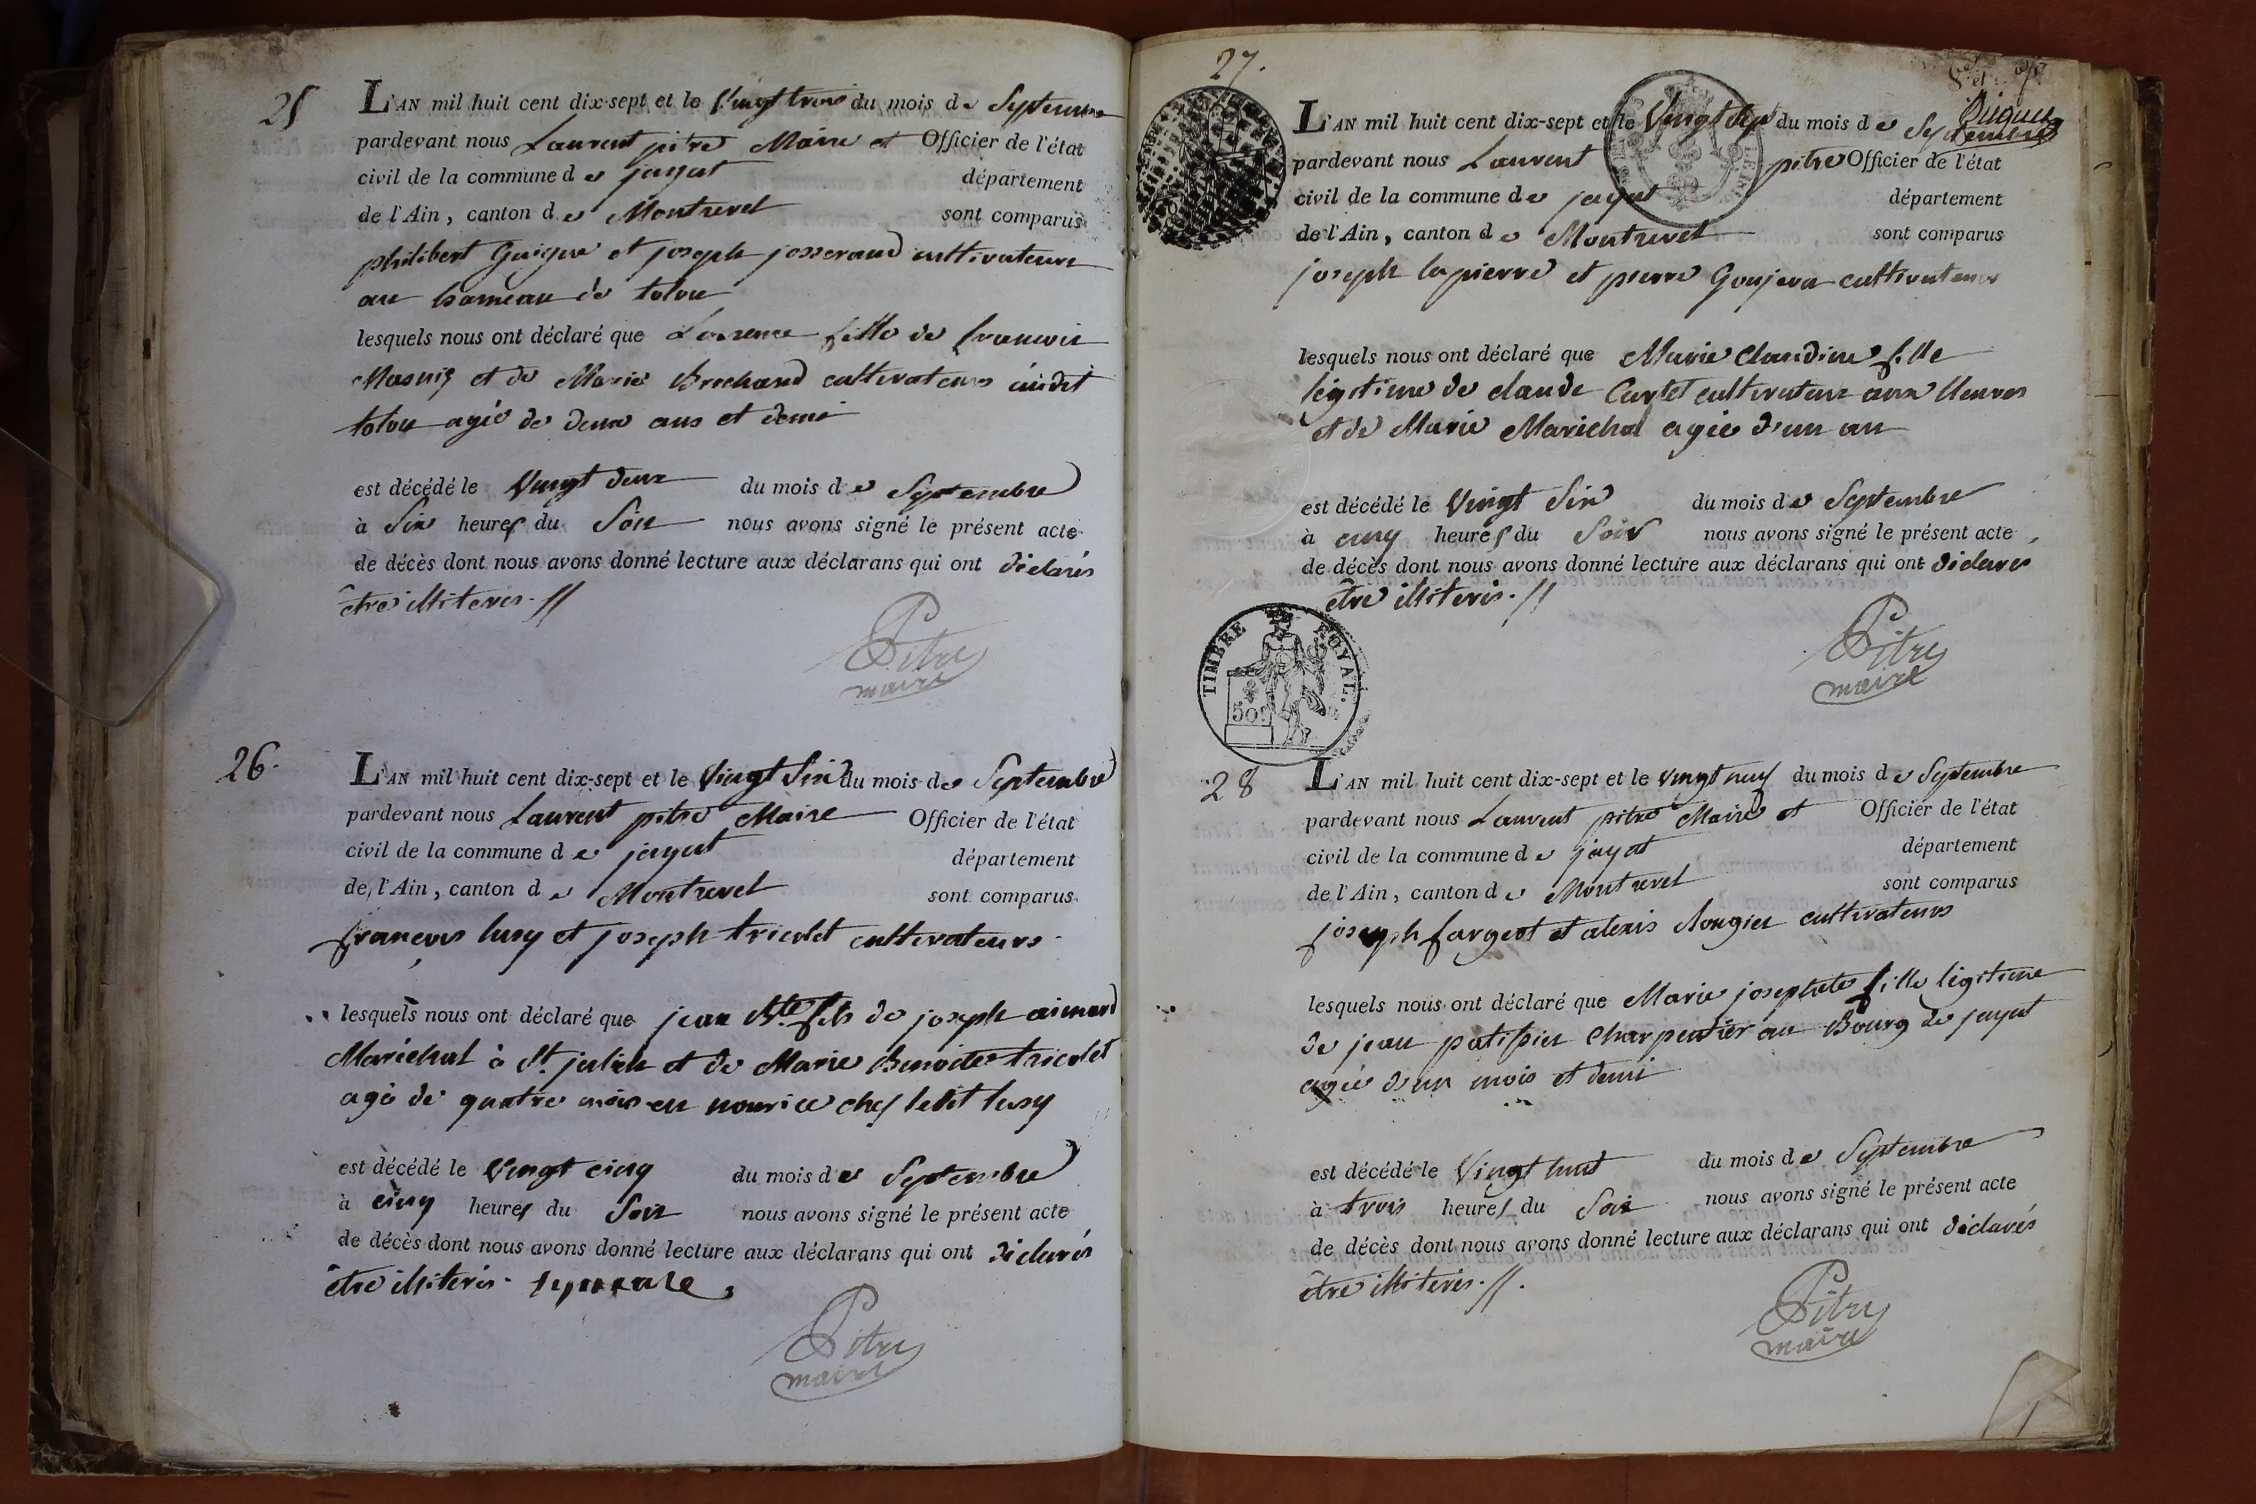 25
L'AN mil huit cent dix-sept et le Vingt trois du mois de Septembre
pardevant nous Laurent pitre Maire et Officier de l'état
civil de la commune de jayat département
de l'Ain, canton de Montrevel sont comparus
philibert Guigue et joseph josserand cultivateurs
au hameau de tolou
lesquels nous ont déclaré que Laurence fille de francois
Masuis et de Marie Brechand cultivateurs audit
tolou agée de deux ans et demi
est décédé le Vingt deux du mois de Septembre
à Six heures du Soir nous avons signé le présent acte
de décès dont nous avons donné lecture aux déclarans qui ont déclarés
être illiterés. //
Pitre
maire
26.
L'AN mil huit cent dix-sept et le Vingt Six du mois de Septembre
pardevant nous Laurent pitre Maire Officier de l'état
civil de la commune de jayat département
de l'Ain, canton de Montrevel sont comparus
françois lusy et joseph tricolet cultivateurs
lesquels nous ont déclaré que jean Bte fils de joseph aimard
Maréchal à St. julien et de Marie Benoite tricolet
agé de quatre mois en nourice chez ledit lusy
est décédé le Vingt cinq du mois de Septembre
à cinq heures du Soir nous avons signé le présent acte
de décès dont nous avons donné lecture aux déclarans qui ont déclarés
être illiterés.
Pitre
maire
27.
L'AN mil huit cent dix-sept et le Vingt Sept du mois de Septembre
pardevant nous Laurent pitre Officier de l'état
civil de la commune de jayat département
de l'Ain, canton de Montrevel sont comparus
joseph lapierre et pierre Goujeva cultivateurs
lesquels nous ont déclaré que Marie Claudine fille
légitime de claude Curtet cultivateur aux
et de Marie Marichal agée d'un an
est décédé le Vingt Six du mois de Septembre
à cinq heures du Soir nous avons signé le présent acte
de décès dont nous avons donné lecture aux déclarans qui ont déclarés
être illiterés. //
Pitre
maire
TIMBRE ROYAL.
50
28
L'AN mil huit cent dix-sept et le Vingt neuf du mois de Septembre
pardevant nous Laurent pitre Maire et Officier de l'état
civil de la commune de jayat département
de l'Ain, canton de Montrevel sont comparus
joseph fargeot et alexis Rougier cultivateurs
lesquels nous ont déclaré que Marie josephte fille légitime
de jean patissier Charpentier au Bourg de jayat
agée d'un mois et demi
est décédé le Vingt huit du mois de Septembre
à trois heures du Soir nous avons signé le présent acte
de décès dont nous avons donné lecture aux déclarans qui ont déclarés
être illiterés. //.
Pitre
maire